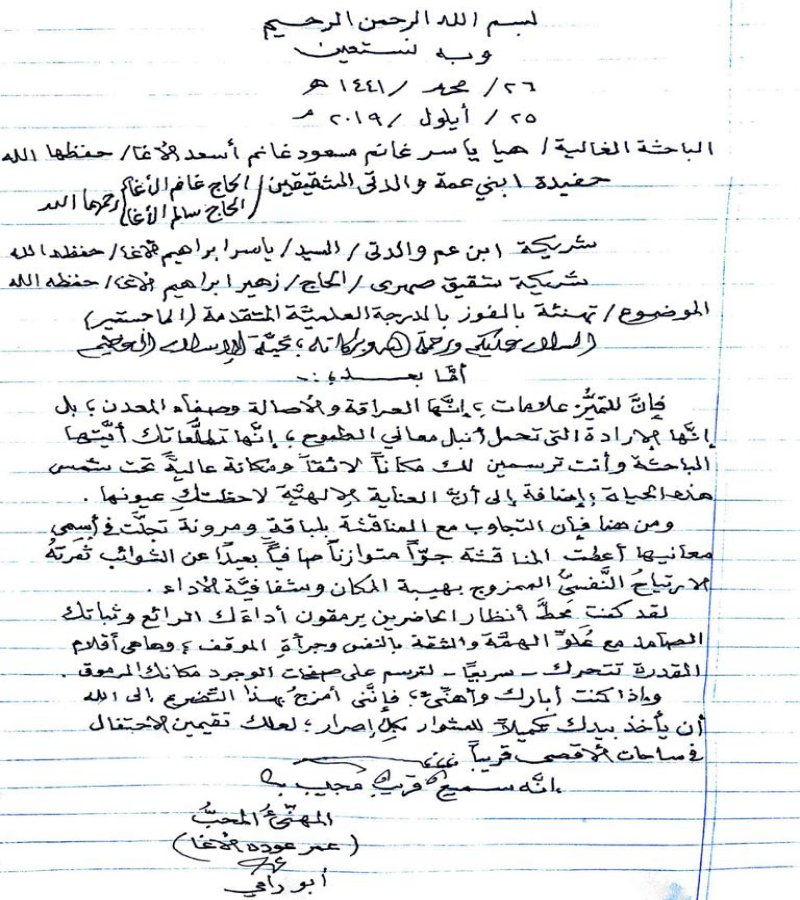 بسم الله الرحمن الرحيم
وبه نستعين
٢٦/ محرم /١٤٤١ هـ
٢٥/ أيلول /٢٠١٩ م
الباحثة الغالية/ هيا ياسر غانم مسعود غانم أسعد الأغا/ حفظها الله
حفيدة ابني عمة والدتي الشقيقين/ الحاج غانم الأغا
الحاج سالم الأغا/ رحمهما الله
شريكة ابن عم والدتي/ السيد/ ياسر ابراهيم الأغا/ حفظه الله
شريكة شقيق صهري/ الحاج/ زهير ابراهيم الأغا/ حفظه الله
الموضوع/ تهنئة بالفوز بالدرجة العلمية المتقدمة (الماجستير)
السلام عليكم ورحمة الله وبركاته؛ تحية الإسلام العظيم
أمَّا بعــد؛؛..
فإنَّ للتميُّز علامات؛ إنَّها العراقة والأصالة وصفاء المعدن؛ بل
إنَّها الإرادة التي تحمل أنبل معاني الطموح؛ إنَّها تطلُّعاتك أيَّتها
الباحثة وأنت ترسمين لك مكاناً لائقاً ومكانة عاليةً تحت شمس
هذه الحياة؛ إضافة إلى أنَّ العناية الإلهيَّة لاحظتكِ عيونها.
ومن هنا فإن التجاوب مع المناقشة بلباقةٍ ومرونة تجلَّت في أسمى
معانيها أعطت المناقشة جوّاً متوازناً صافياً بعيداً عن الشوائب ثمرتهُ
الارتياحُ النَّفسيُّ الممزوج بهيبة المكان وشفافيَّة الأداء.
لقد كنت محطَّ أنظار الحاضرين يرمقون أداءَك الرائع وثباتك
الصامد مع عُلوِّ الهمَّة والثقة بالنفس وجرأةِ الموقف؛ وها هي أقلام
المقدرة تتحرك - سريعًا - لترسم على صفحات الوجود مكانك المرموق.
وإذا كنت أبارك وأهنّئ؛ فإنَّني أمزجُ بهذا التضرع إلى الله
أن يأخذ بيدك تكميلاً للمشوار بكلِّ إصرار؛ لعلك تقيمين الاحتفال
في ساحات الأقصى قريباً
إنَّه سميعٌ قريبٌ مجيب
المهنّئُ المحبُّ
(عمر عوده الأغا)
أبو رامي